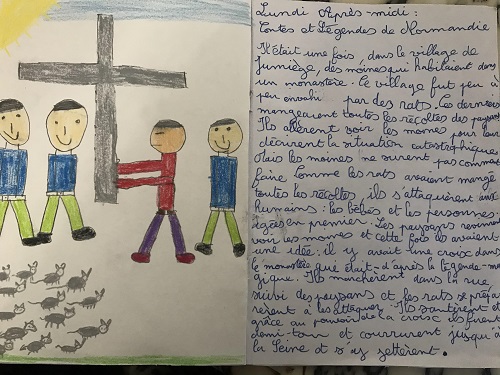 Lundi Après-midi :
Contes et Légendes de Normandie
Il était une fois, dans le village de
Jumièges, des moines qui habitaient dans
un monastère. Le village fut peu à
peu envahi par des rats. Ces derniers
mangeaient toutes les récoltes des paysans
Ils allèrent voir les moines pour leur
décrirent la situation catastrophique.
Mais les moines ne surent pas comment
faire. Comme les rats avaient mangé
toutes les récoltes, ils s'attaquèrent aux
humains : les bébés et les personnes
âgées en premier. Les paysans revinrent
voir les moines et cette fois ils avaient
une idée : il y avait une croix dans
le monastère que était - d'après la légende - ma
gique. Ils marchèrent dans la rue
suivi des paysans et les rats se prépa
rèrent à les attaquer. Ils sentirent et
grâce au pouvoir de la croix ils firent
demi-tour et coururent jusqu'à
la Seine et s'y jettèrent.